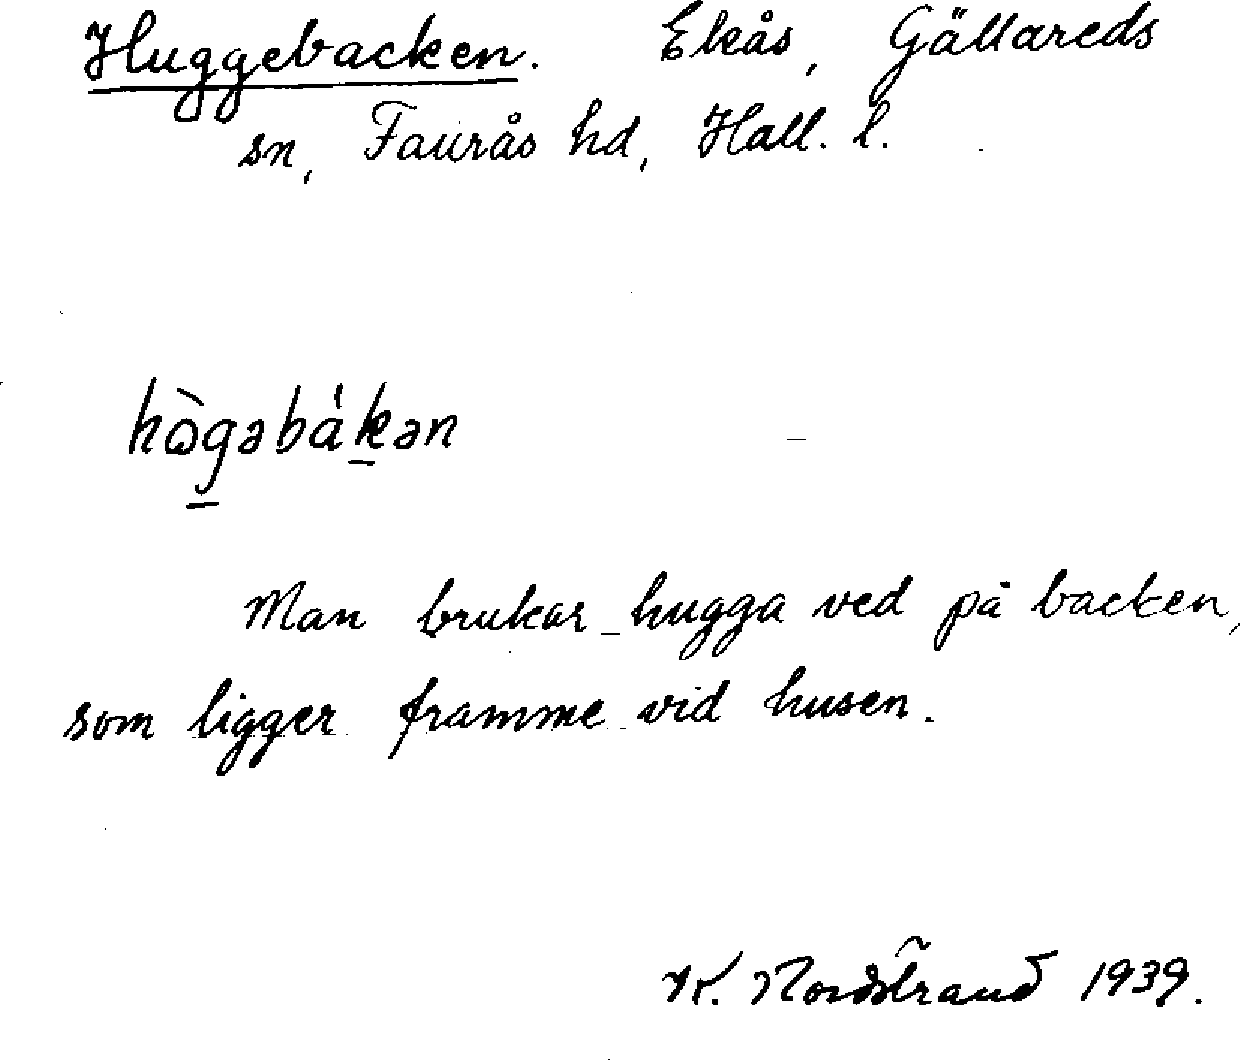 Huggebacken. Ekås, Gällareds
sn, Faurås hd, Hall. l.
hò̤gəbák̠ən
Man brukar hugga ved på backen,
som ligger framme vid husen.
K. Nordstrand 1939.